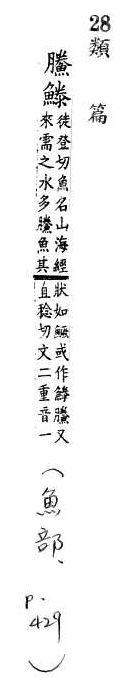 28 類篇
䲢鰧
徒登切魚名山海經
來需之水多䲢魚其
狀如鱖或作䲢又
且稔切文二重音一
（魚部、p.429）